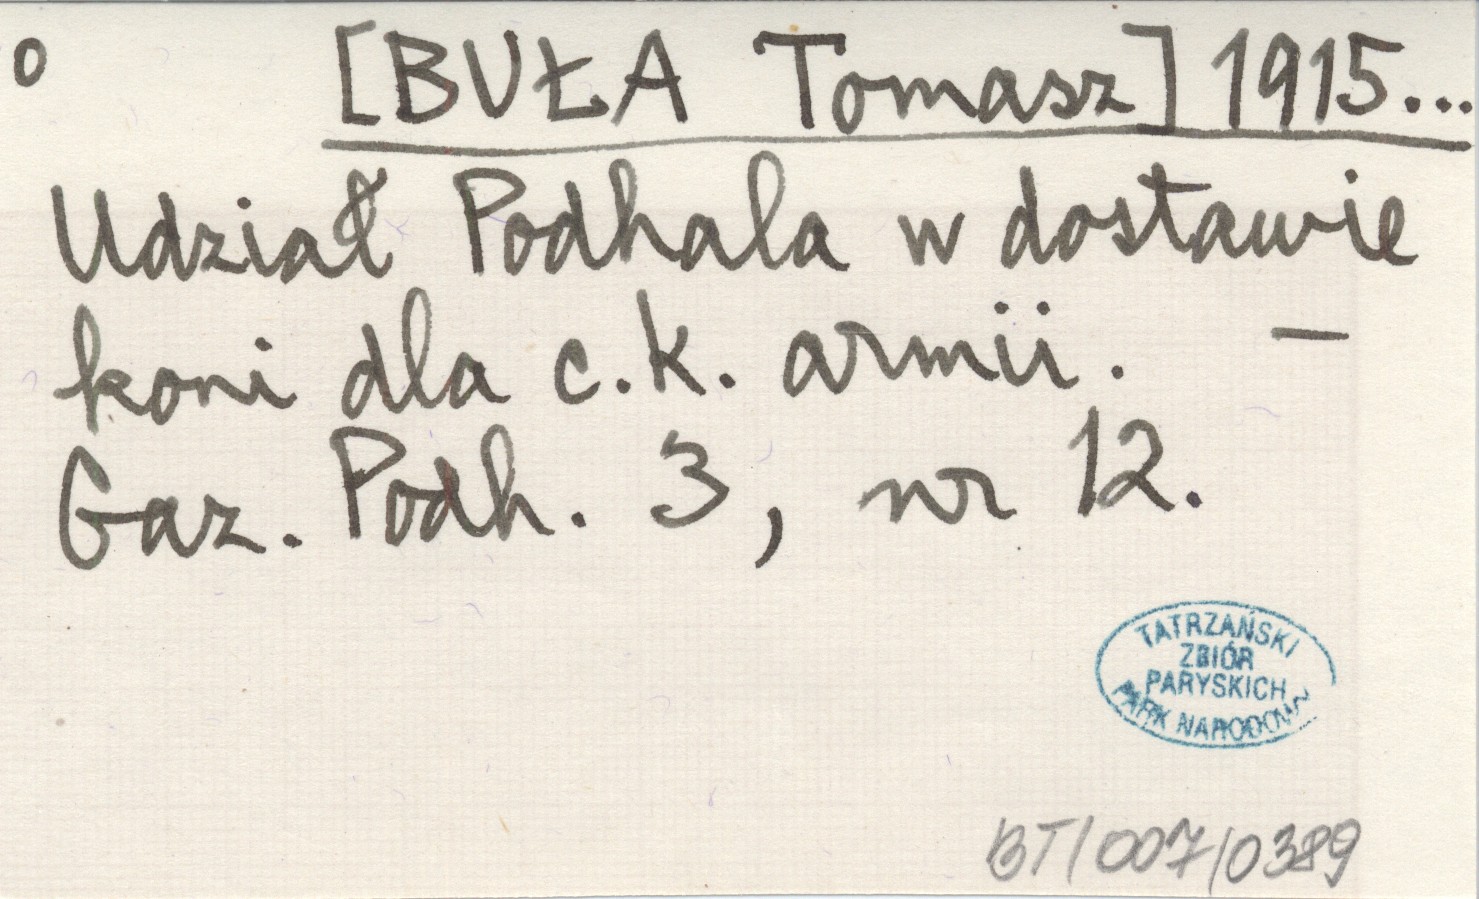 o [BUŁA Tomasz] 1915...
Udział Podhala w dostawie
koni dla c.k. armii. —
Gaz. Podh. 3, nr 12.
TATRZAŃSKI
ZBIÓR
PARYSKICH
PARK NARODOWY
BT/007/0389